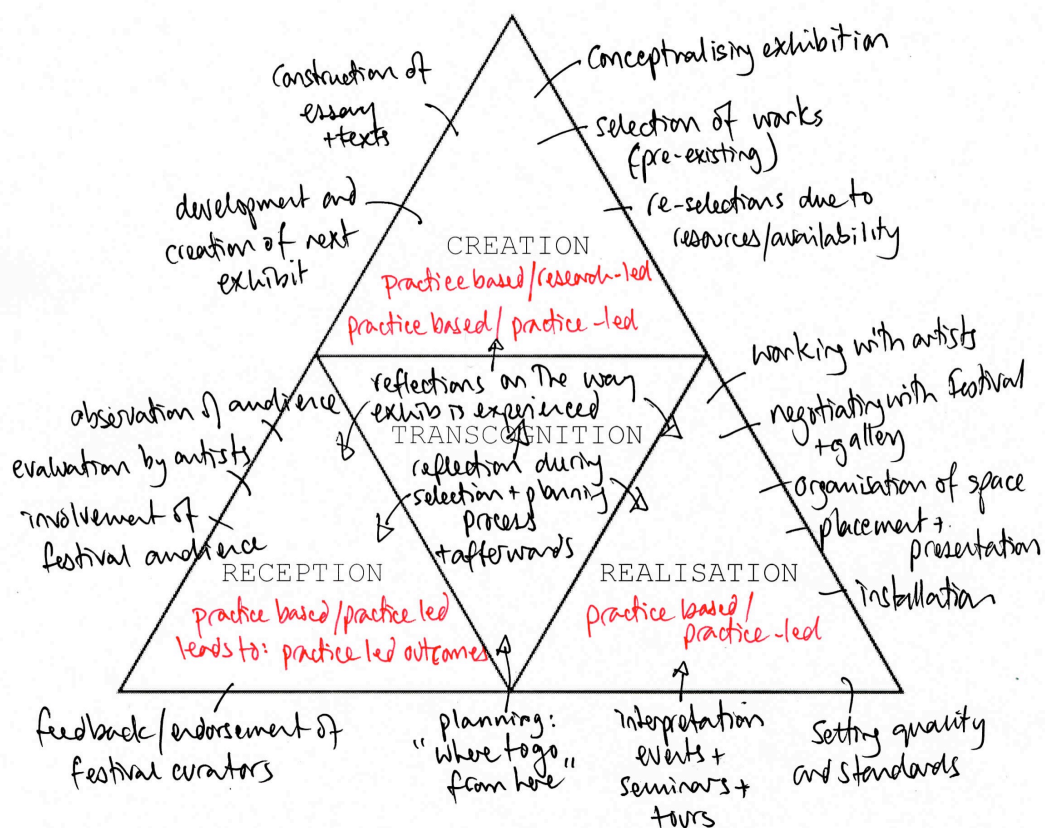 construction of
essay
+texts
development and
creation of next
exhibit
Conceptualising exhibition
selection of works
(pre-existing)
re-selections due to
resources/availability
CREATION
Practice based/research-led
practice based/practice-led
reflections on the way
exhib is experienced
TRANSCOGNITION
reflection during
selection + planning
process
+afterwards
observation of audience
evaluation by artists
involvement of
festival audience
RECEPTION
practice based/practice led
leads to: practice led outcomes
working with artists
negotiating with Festival
+ gallery
organisation of space
placement +
presentation
installation
REALISATION
practice based/
practice-led
feedback/endorsement of
festival curators
planning:
"where to go
from here"
interpretation
events +
seminars +
tours
Setting quality
and standards